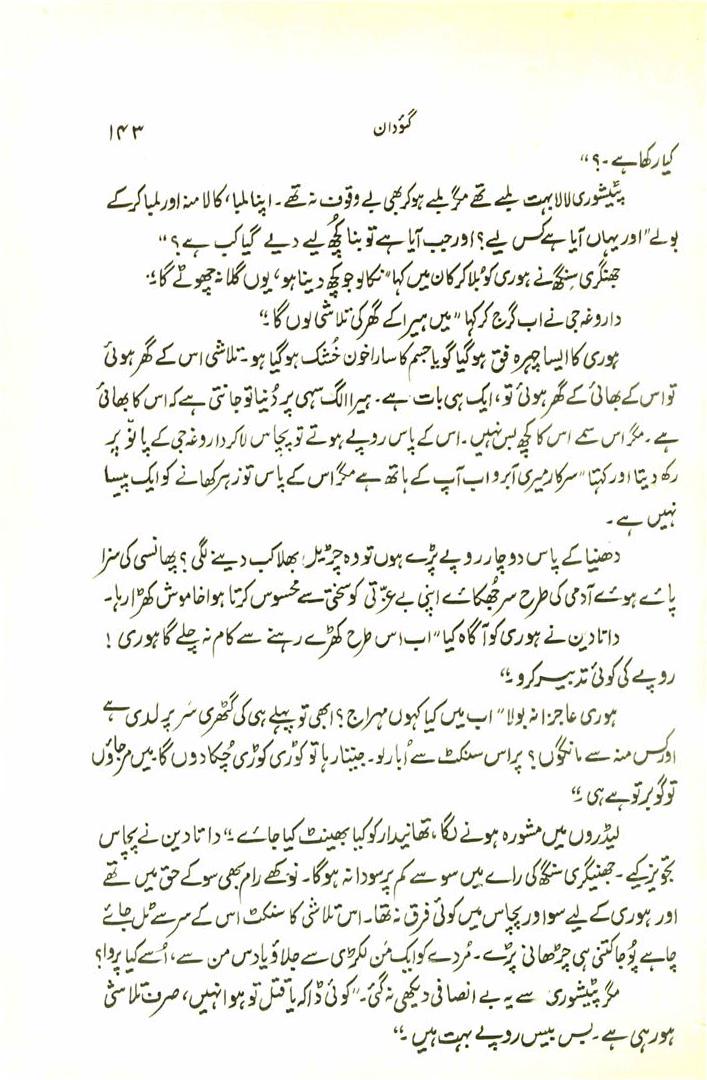 گؤدان ۱۴۳
کیا رکھا ہے۔؟“
پٹیشوری لالا بہت لمبے تھے مگر لمبے ہو کر بھی بے وقوف نہ تھے۔ اپنا لمبا، کالا منہ اور لمبا کر کے
بولے ”اور یہاں آیا ہے کس لیے؟ اور جب آیا ہے تو بنا کچھ لیے دیے گیا کب ہے؟“
جھنگری سنگھ نے ہوری کو بلا کر کان میں کہا ”نکالو جو کچھ دینا ہو، یوں گلا نہ چھوٹے گا۔“
داروغہ جی نے اب گرج کر کہا ”میں ہیرا کے گھر کی تلاشی لوں گا۔“
ہوری کا ایسا چہرہ فق ہو گیا گویا جسم کا سارا خون خُشک ہو گیا ہو۔ تلاشی اس کے گھر ہوئی
تو اس کے بھائی کے گھر ہوئی تو، ایک ہی بات ہے۔ ہیرا الگ سہی پر دُنیا تو جانتی ہے کہ اس کا بھائی
ہے۔ مگر اس سمے اس کا کچھ بس نہیں۔ اس کے پاس روپے ہوتے تو پچاس لا کر داروغہ جی کے پانوؔ پر
رکھ دیتا اور کہتا ”سرکار میری آبرو اب آپ کے ہاتھ ہے مگر اس کے پاس تو زہر کھانے کو ایک پیسا
نہیں ہے۔
دھنیا کے پاس دو چار روپے پڑے ہوں تو وہ چڑیل بھلا کب دینے لگی؟ پھانسی کی سزا
پاے ہوے آدمی کی طرح سر جُھکاے اپنی بے عزّتی کو سختی سے محسوس کرتا ہوا خاموش کھڑا رہا۔
داتادین نے ہوری کو آگاہ کیا ”اب اس طرح کھڑے رہنے سے کام نہ چلے گا ہوری !
روپے کی کوئی تدبیر کرو۔“
ہوری عاجزانہ بولا ”اب میں کیا کہوں مہراج؟ ابھی تو پہلے ہی کی گٹھری سر پر لدی ہے
اور کس منہ سے مانگوں؟ پر اس سنکٹ سے اُبار لو۔ جیتا رہا تو کوڑی کوڑی چُکا دوں گا۔ میں مر جاؤں
تو گوبر تو ہے ہی۔“
لیڈروں میں مشورہ ہونے لگا، تھانیدار کو کیا بھینٹ کیا جاے۔“ داتادین نے پچاس
تجویز کیے۔ جھنیگری سنگھ کی راے میں سو سے کم پر سودا نہ ہوگا۔ نوکھے رام بھی سو کے حق میں تھے
اور ہوری کے لیے سو اور پچاس میں کوئی فرق نہ تھا۔ اس تلاشی کا سنکٹ اس کے سر سے ٹل جائے
چاہے پُوجا کتنی ہی چڑھانی پڑے۔ مُردے کو ایک مَن لکڑی سے جلاؤ یا دس من سے، اُسے کیا پروا؟
مگر پٹیشوری سے یہ بے انصافی دیکھی نہ گئی۔ ”کوئی ڈاکہ یا قتل تو ہوا نہیں، صرف تلاشی
ہو رہی ہے۔ بس بیس روپے بہت ہیں۔“